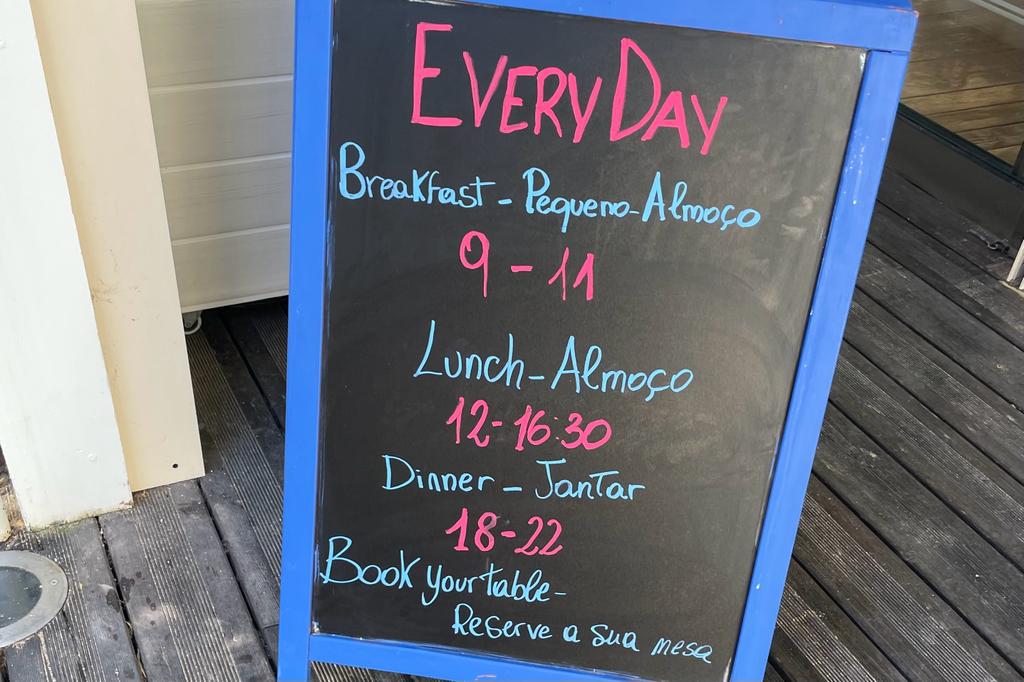 EVERY DAY
Breakfast - Pequeno-Almoço
9 - 11
Lunch - Almoço
12 - 16:30
Dinner - Jantar
18 - 22
Book your table -
Reserve a sua mesa